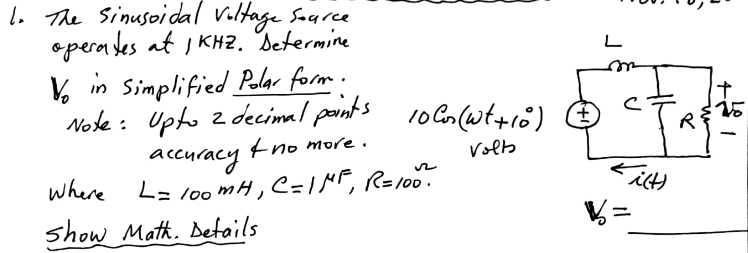 1. The Sinusoidal Voltage Source
operates at 1 KHZ. Determine
V₀ in Simplified Polar form.
Note: Upto 2 decimal points
accuracy & no more.
where L = 100 mH, C = 1 MF, R = 100 Ω.
Show Math. Details
10 Cos(wt+10°)
volts
±
L
C
R
+
v₀
−
i(t)
V₀ =